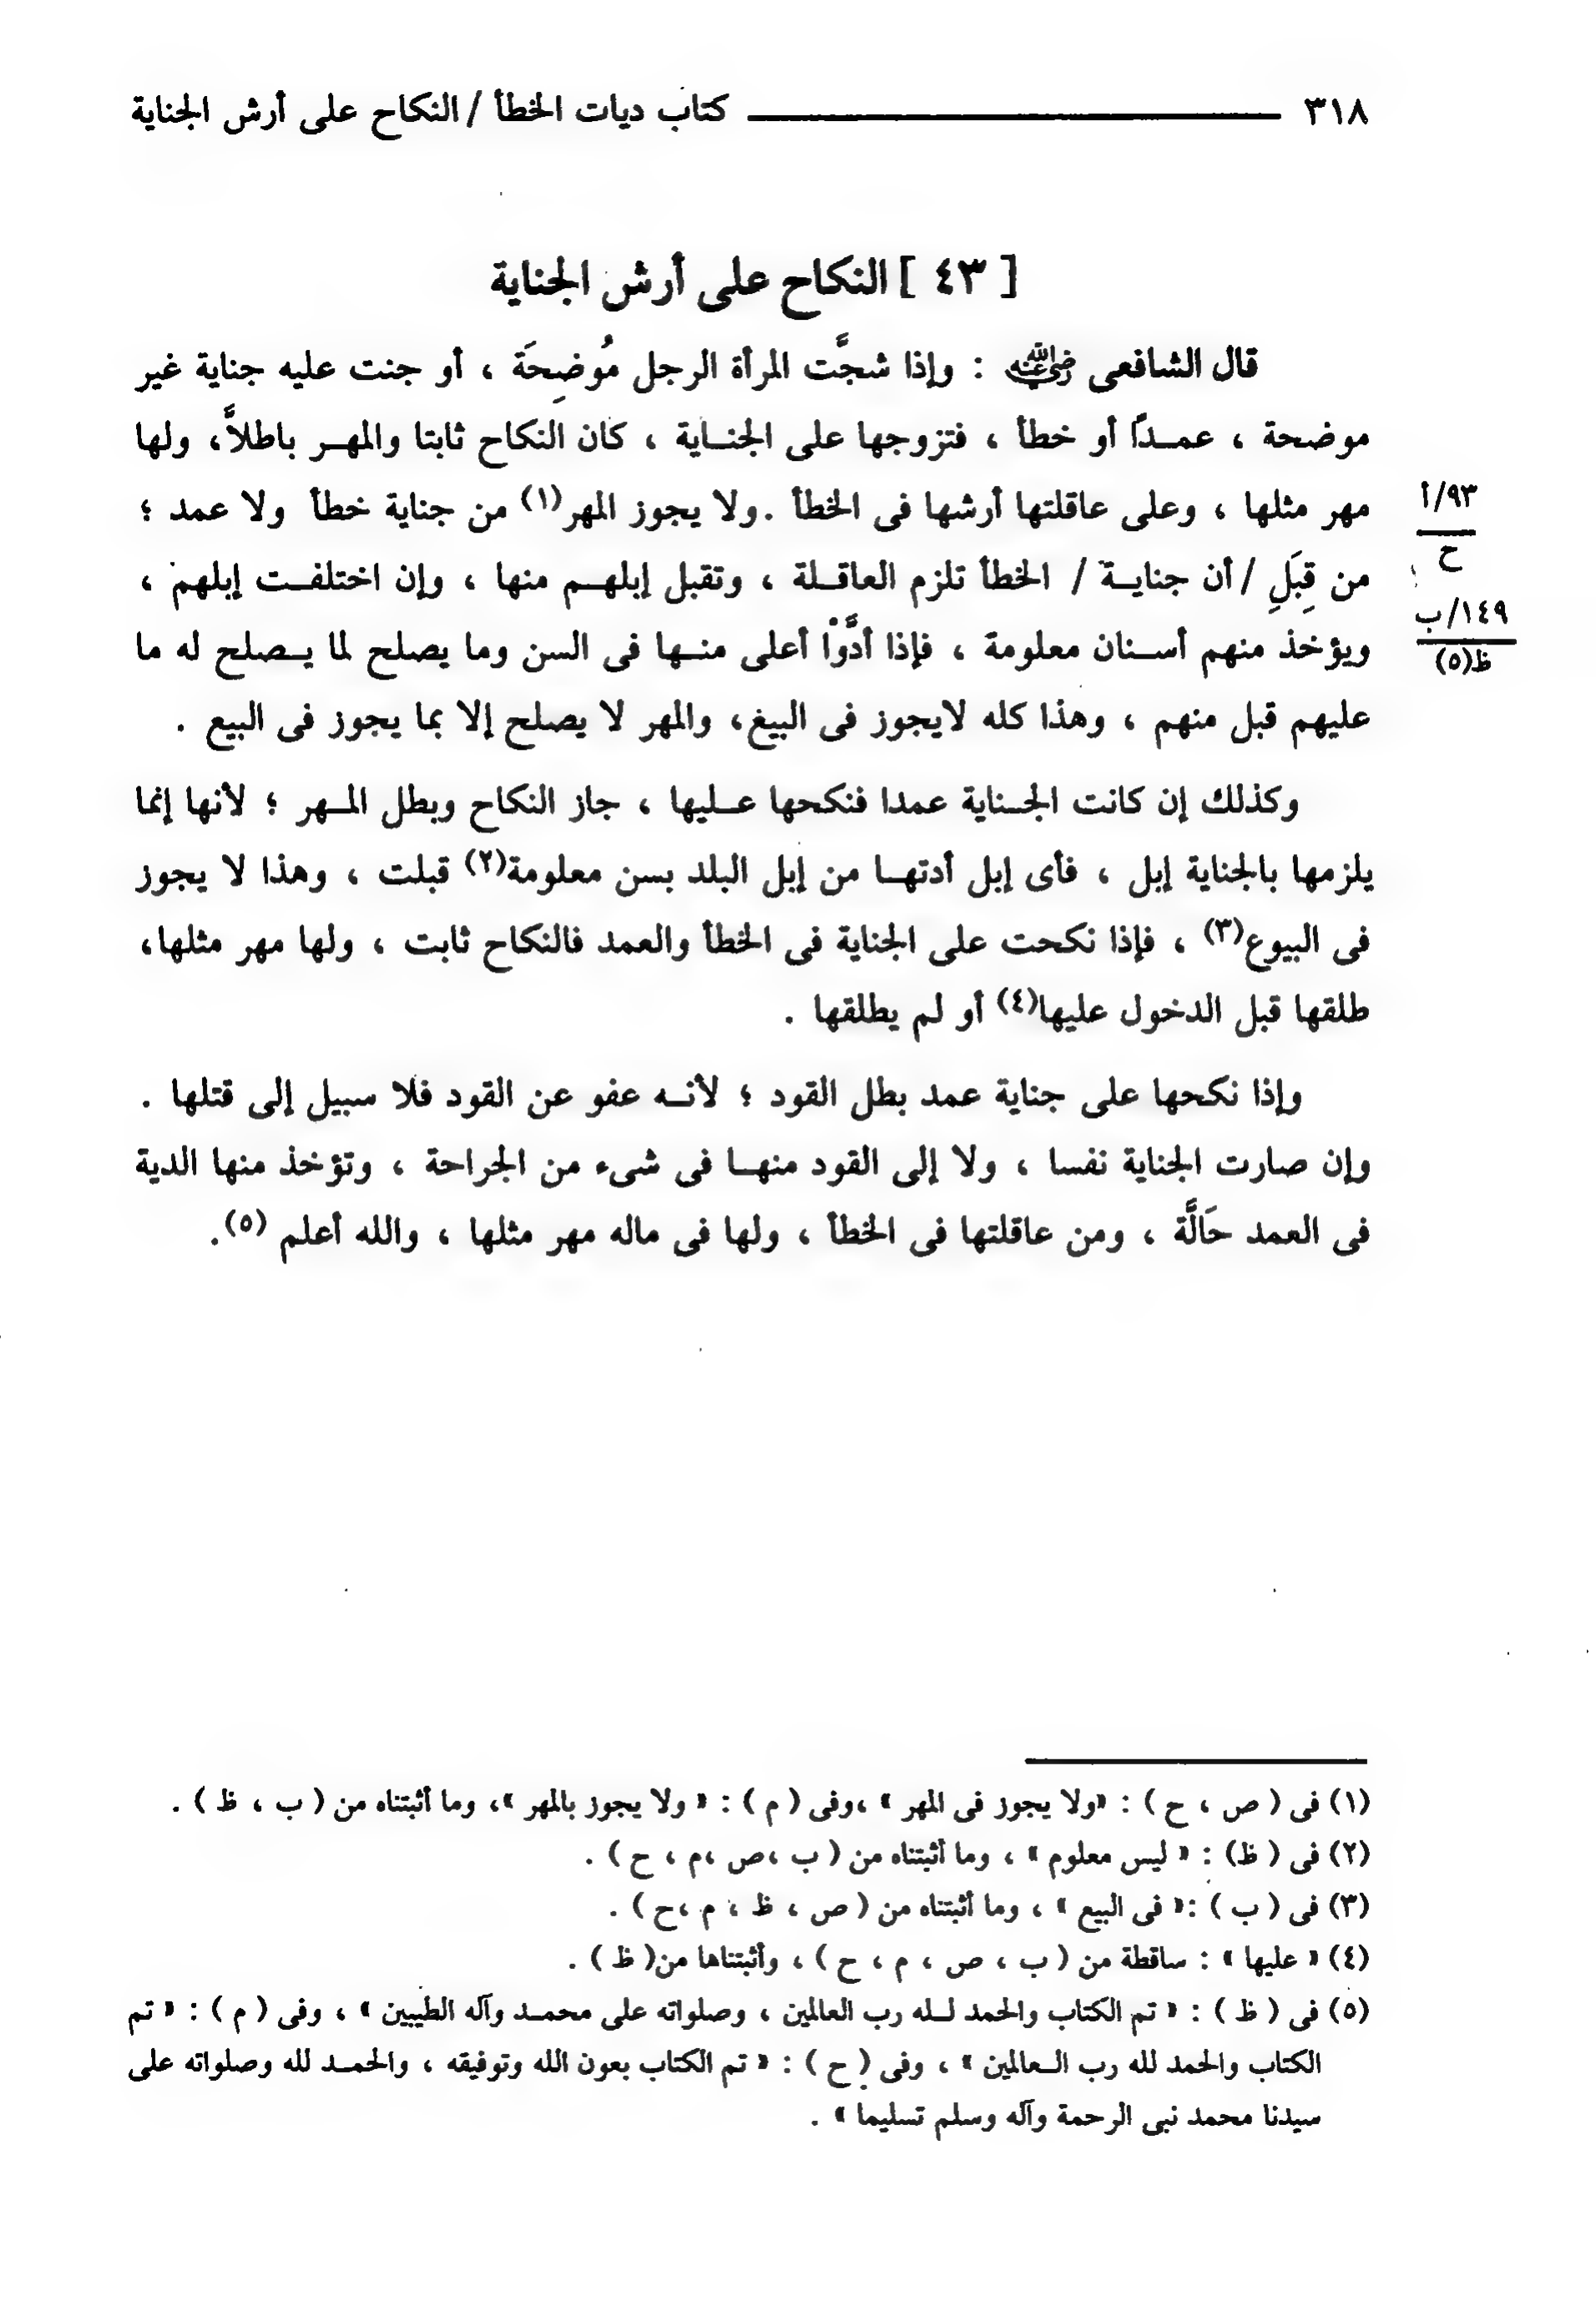 ٣١٨ كتاب ديات الخطأ / النكاح على أرش الجناية
[ ٤٣ ] النكاح على أرش الجناية
قال الشافعى رضي الله عنه : وإذا شجَّت المرأة الرجل مُوضِحَة ، أو جنت عليه جناية غير
موضحة ، عمداً أو خطأ ، فتزوجها على الجناية ، كان النكاح ثابتا والمهر باطلاً، ولها
مهر مثلها ، وعلى عاقلتها أرشها فى الخطأ . ولا يجوز المهر(١) من جناية خطأ ولا عمد ؛
٩٣/أ
ح
من قِبَلِ / أن جناية / الخطأ تلزم العاقلة ، وتقبل إبلهم منها ، وإن اختلفت إبلهم ،
١٤٩/ب
ظ(٥)
ويؤخذ منهم أسنان معلومة ، فإذا أدَّوْا أعلى منها فى السن وما يصلح لما يصلح له ما
عليهم قبل منهم ، وهذا كله لايجوز فى البيع، والمهر لا يصلح إلا بما يجوز فى البيع .
وكذلك إن كانت الجناية عمدا فنكحها عليها ، جاز النكاح وبطل المهر ؛ لأنها إنما
يلزمها بالجناية إبل ، فأى إبل أدتها من إبل البلد بسن معلومة(٢) قبلت ، وهذا لا يجوز
فى البيوع(٣) ، فإذا نكحت على الجناية فى الخطأ والعمد فالنكاح ثابت ، ولها مهر مثلها،
طلقها قبل الدخول عليها(٤) أو لم يطلقها .
وإذا نكحها على جناية عمد بطل القود ؛ لأنه عفو عن القود فلا سبيل إلى قتلها .
وإن صارت الجناية نفسا ، ولا إلى القود منها فى شىء من الجراحة ، وتؤخذ منها الدية
فى العمد حَالَّة ، ومن عاقلتها فى الخطأ ، ولها فى ماله مهر مثلها ، والله أعلم (٥).
(١) فى ( ص ، ح ) : «ولا يجوز فى المهر » ،وفى ( م ) : « ولا يجوز بالمهر »، وما أثبتناه من ( ب ، ظ ) .
(٢) فى ( ظ) : « ليس معلوم » ، وما أثبتناه من ( ب ،ص ،م ، ح ) .
(٣) فى ( ب ) :« فى البيع » ، وما أثبتناه من ( ص ، ظ ، م ،ح ) .
(٤) « عليها » : ساقطة من ( ب ، ص ، م ، ح ) ، وأثبتناها من( ظ ) .
(٥) فى ( ظ ) : « تم الكتاب والحمد لله رب العالمين ، وصلواته على محمد وآله الطيبين » ، وفى ( م ) : « تم
الكتاب والحمد لله رب العالمين » ، وفى ( ح ) : « تم الكتاب بعون الله وتوفيقه ، والحمد لله وصلواته على
سيدنا محمد نبى الرحمة وآله وسلم تسليما » .